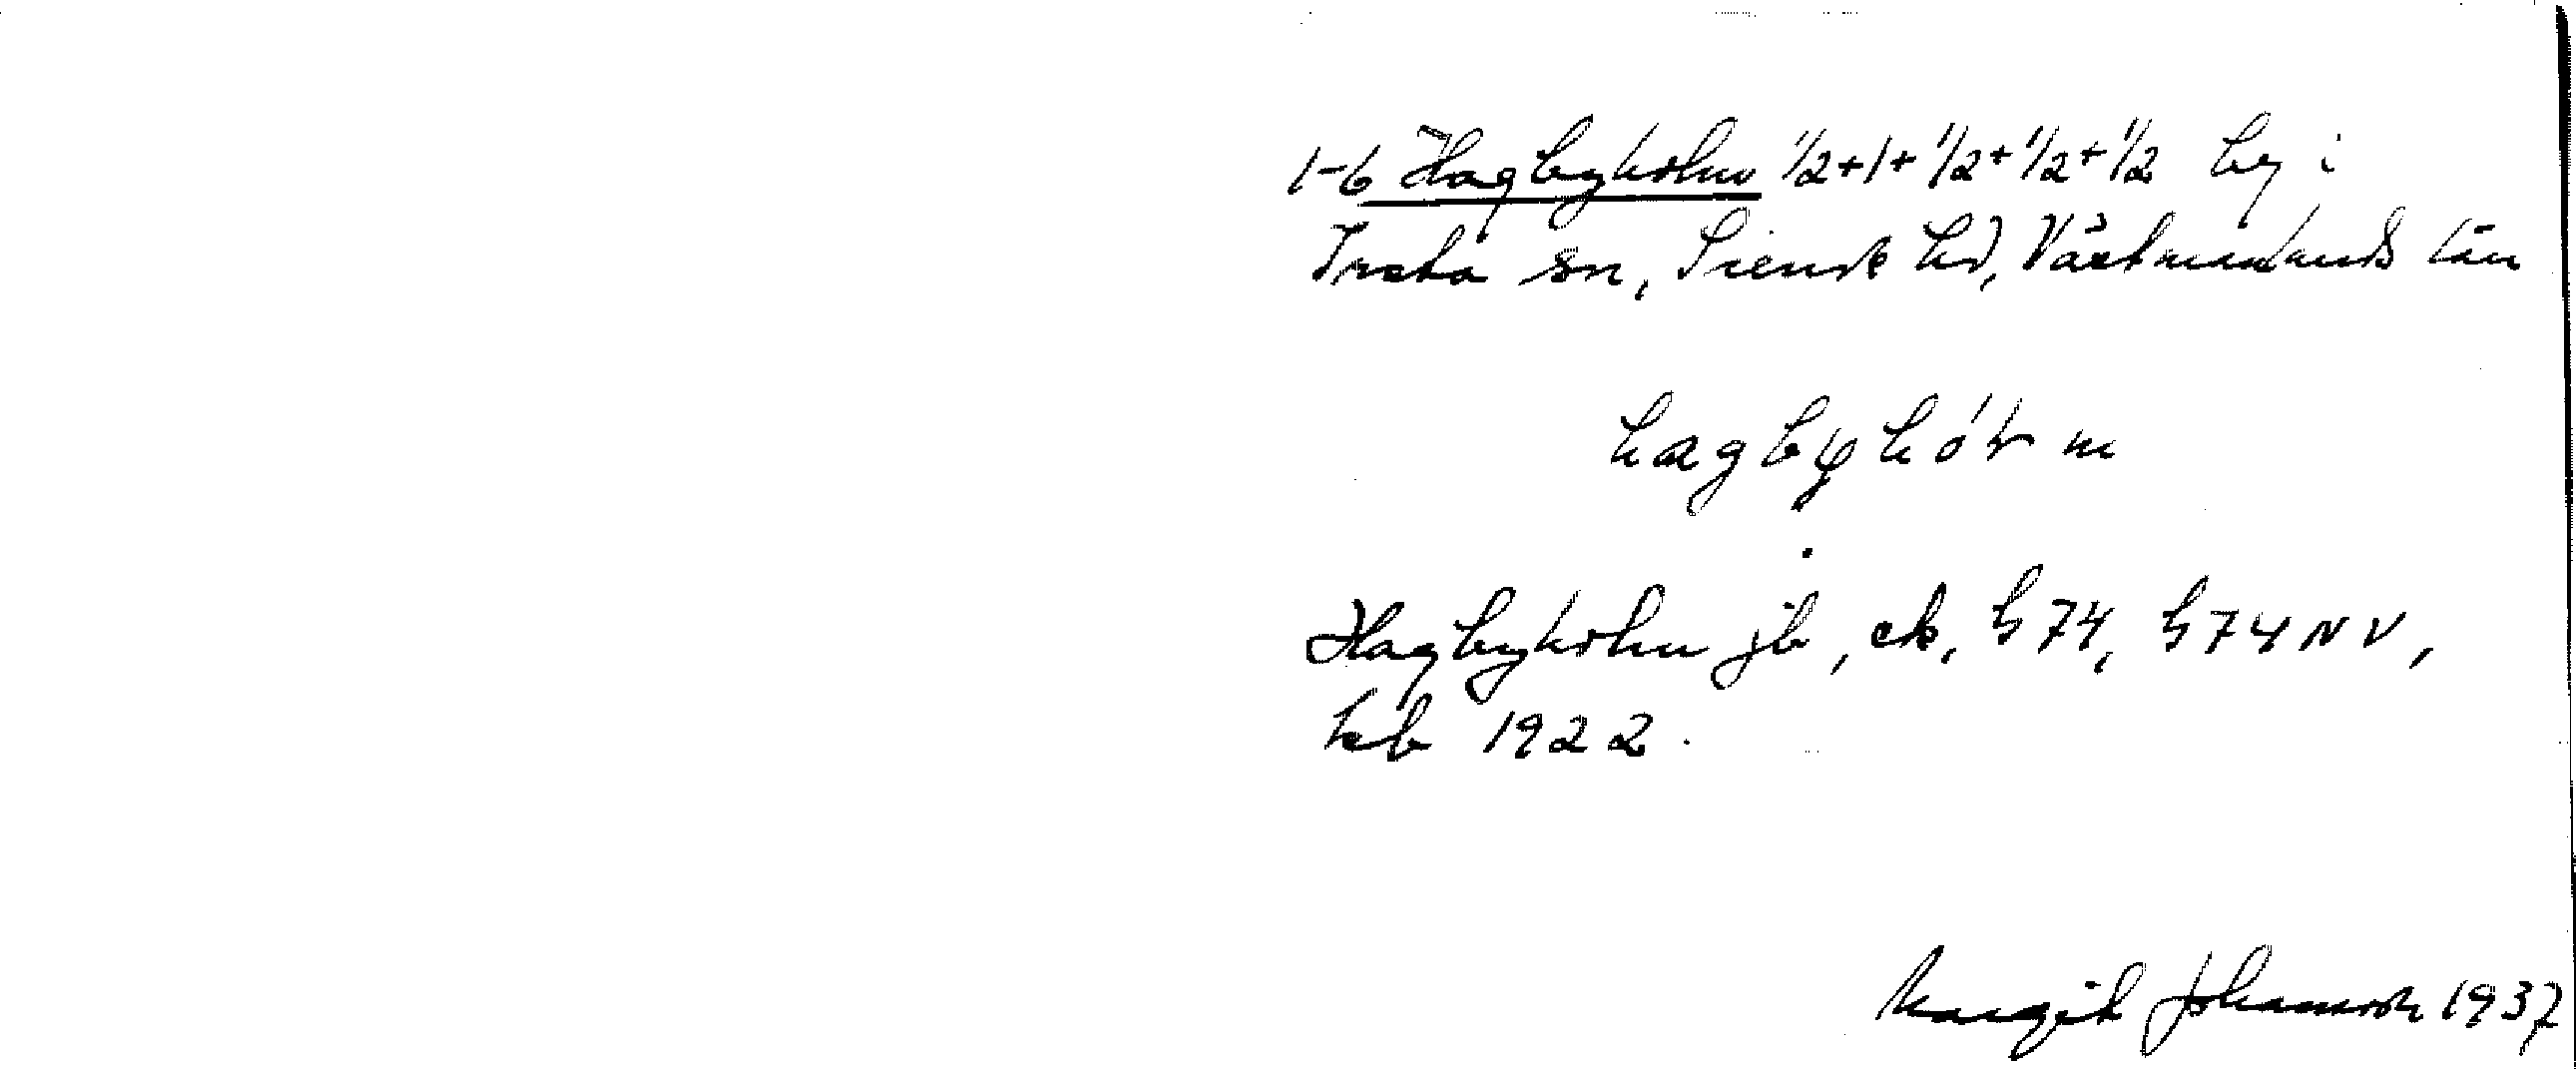 1-6 Hagbyholm 1/2+1+1/2+1/2+1/2 by i
Irsta sn, Siende hd, Västmanlands län
hagbyhól m
Hagbyholm jb, ek, h74, h74NV,
tab 1922.
Margit Johansson 1937